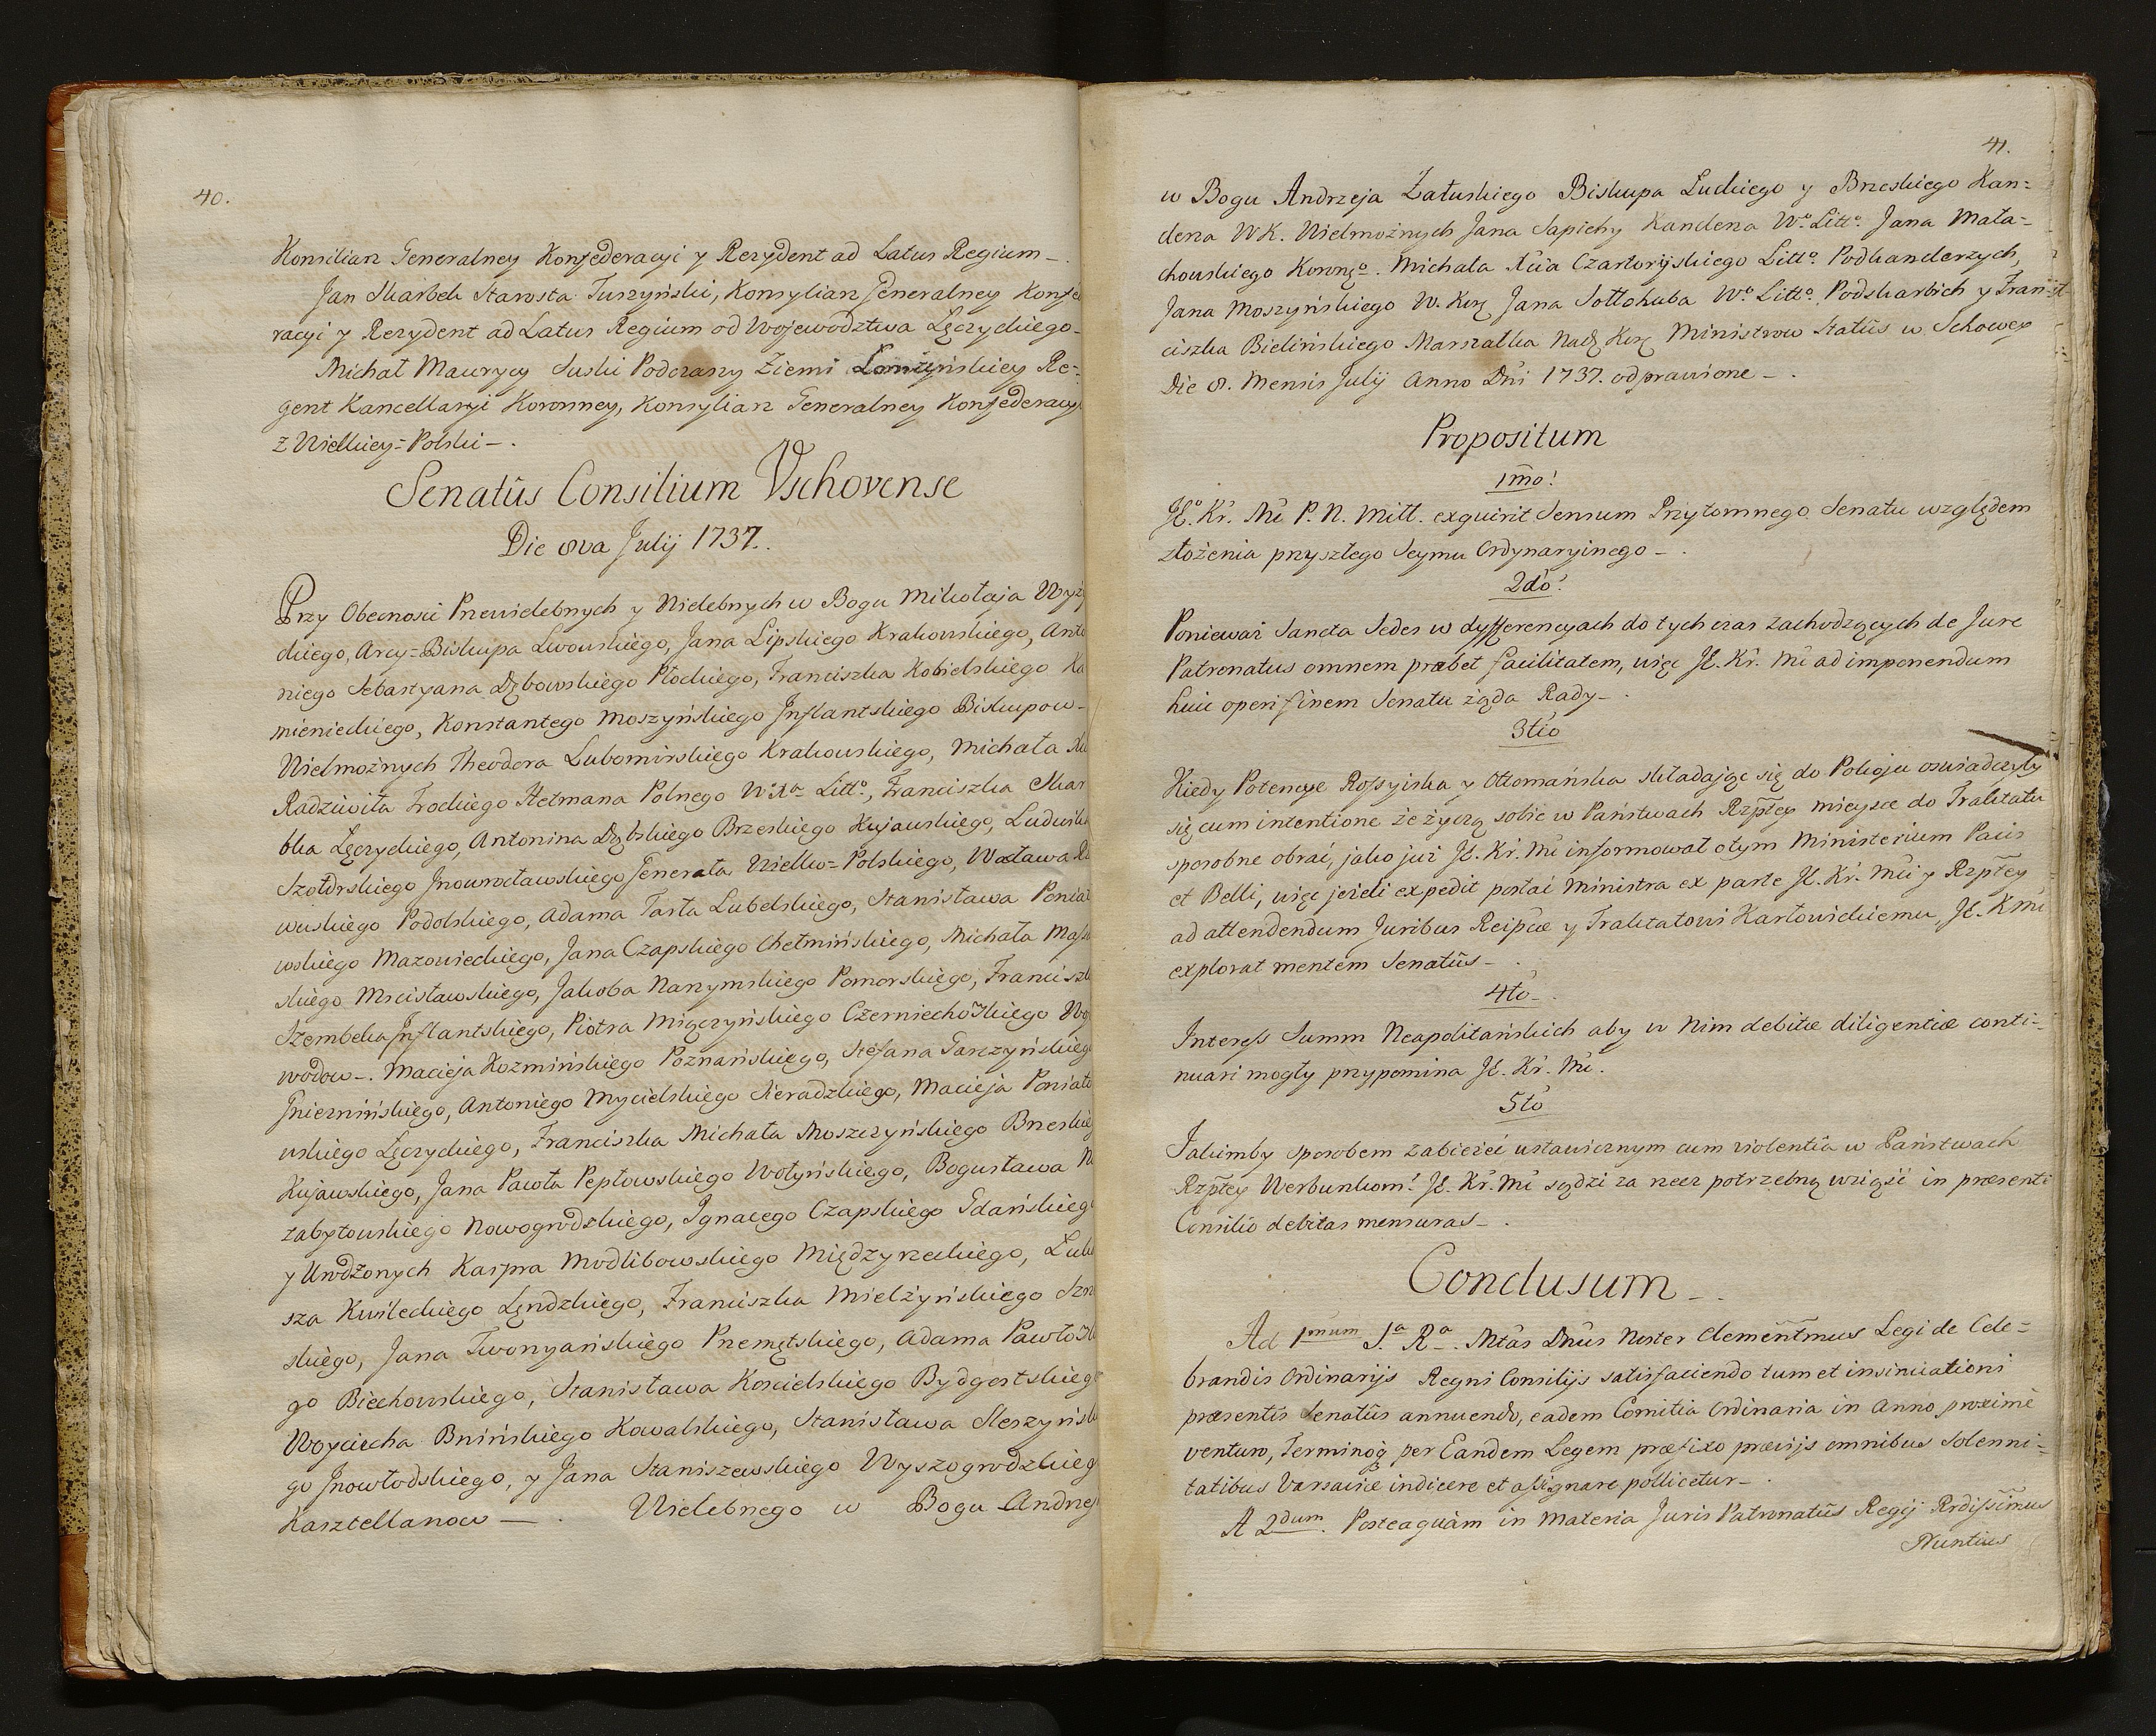 40.
Konsiliarz Generalney Konfederacyi y Rezydent ad Latus Regium –.
Jan Skarbek Starosta Tuszyński, Konsyliarz Generalney Konfe
racyi y Rezydent ad Latus Regium od Wojewodztwa Łęczyckiego –
Michał Maurycy Suski Podczaszy Ziemi Łomżyńskiey Re=
gent Kancellaryi Koronney, Konsyliarz Generalney Konfederacyi
z Wielkiey=Polski –.
Senatûs Consilium Vschovense
Die 8va Julij 1737.
Przy Obecności Przewielebnych y Wielebnych w Bogu Mikołaja Wyży
ckiego, Arcy=Biskupa Lwowskiego, Jana Lipskiego Krakowskiego, Anto
niego Sebastyana Dębowskiego Płockiego, Franciszka Kobielskiego Ka
mienieckiego, Konstantego Moszyńskiego Inflantskiego Biskupow –
Wielmożnych Theodora Lubomirskiego Krakowskiego, Michała Xcia
Radziwiła Trockiego Hetmana Polnego W. Xa Litto, Franciszka Skar
bka Łęczyckiego, Antonina Dąbskiego Brzeskiego Kujawskiego, Ludwika
Szołdrskiego Jnowrocławskiego Generała Wielko=Polskiego, Wacława Rze
wuskiego Podolskiego, Adama Tarła Lubelskiego, Stanisława Poniato
wskiego Mazowieckiego, Jana Czapskiego Chełmińskiego, Michała Massal
skiego Mscisławskiego, Jakoba Narzymskiego Pomorskiego, Franciszka
Szembeka Jnflantskiego, Piotra Miączyńskiego Czerniechowskiego Wo
wodow –. Macieja Kozmińskiego Poznańskiego, Stefana Garczyńskiego
Gnieznińskiego, Antoniego Mycielskiego Sieradzkiego, Macieja Poniato
wskiego Łęczyckiego, Franciszka Michała Moszczyńskiego Brzeskieg
Kujawskiego, Jana Pawła Pepłowskiego Wołyńskiego, Bogusława Nie
zabytowskiego Nowogrodzkiego, Jgnacego Czapskiego Gdańskiego
y Urodzonych Kaspra Modlibowskiego Międzyrzeckiego, Łuka
sza Kwileckiego Lęndzkiego, Franciszka Mielżyńskiego Szrem
skiego, Jana Tworzyańskiego Przemętskiego, Adama Pawłowskie
go Biechowskiego, Stanisława Koscielskiego Bydgostskiego
Woyciecha Bnińskiego Kowalskiego, Stanisława Sleszyńskie
go Jnowłodskiego, y Jana Staniszewskiego Wyszogrodzkiego
Kasztellanow –. Wielebnego w Bogu Andrzej
41.
w Bogu Andrzeja Załuskiego Biskupa Luckiego y Brzeskiego Kan=
clerza WK. Wielmożnych Jana Sapiehy Kanclerza Wo. Litto. Jana Mała=
chowskiego Koronnego. Michała Xcia Czartoryjskiego Litto. Podkanclerzych,
Jana Moszyńskiego W. Kor. Jana Sołłohuba Wo Litto. Podskarbich y Fran=
ciszka Bielińskiego Marszałka Nad. Kor. Ministrow Statûs w Schowey
Die 8. Mensis Julij Anno Dni 1737. odprawione –.
Propositum
1mo.
Jº. Kr. Mć P. N. Mill. exquirit Sensum Przytomnego Senatu względem
złożenia przyszłego Seymu Ordynaryjnego –.
2do.
Poniewaz Sancta Sedes w dyfferencyach do tych czas zachodzących de Jure
Patronatus omnem præbet facilitatem, więc JK. Kr. Mć ad imponendum
huic operi finem Senatu żąda Rady –.
3tio
Kiedy Potencye Rossyiska y Ottomańska składając się do Pokoju oswiadczyły
się cum intentione że życzą sobie w Państwach Rzpłey mieysce do Traktatu
sposobne obrać, jako już JK. Kr. Mć informował o tym Ministerium Pacis
et Belli, więc jezeli expedit posłać Ministra ex parte JK. Kr. Mci y Rzpłey
ad attendendum Juribus Reipcæ y Traktatowi Karłowickiemu, JK. K Mć
explorat mentem Senatûs –.
4to –.
Interess Summ Neapolitańskich aby w Nim debitæ diligentiæ conti=
nuari mogły przypomina JK. Kr. Mć.
5to
Jakimby sposobem zabieżeć ustawicznym cum violentia w Państwach
Rzpłey Werbunkom. JK. Kr. Mć sądzi za rzecz potrzebną wziąść in præsenti
Consilio debitas mensuras –.
Conclusum –.
Ad 1mum Sa. Ra. Mtas Dnus Noster Clementmus Legi de Cele=
brandis Ordinarijs Regni Consilijs satisfaciendo tum et insinuationi
præsentis Senatûs annuendo, eadem Comitia Ordinaria in Anno proximè
venturo, Terminoq per Eandem Legem præfixo prævijs omnibus Solenni=
tatibus Varsaviæ indicere et assignare pollicetur –.
A 2dum. Posteaquàm in Materia Juris Patronatûs Regij Rrdissimus
Nuntius